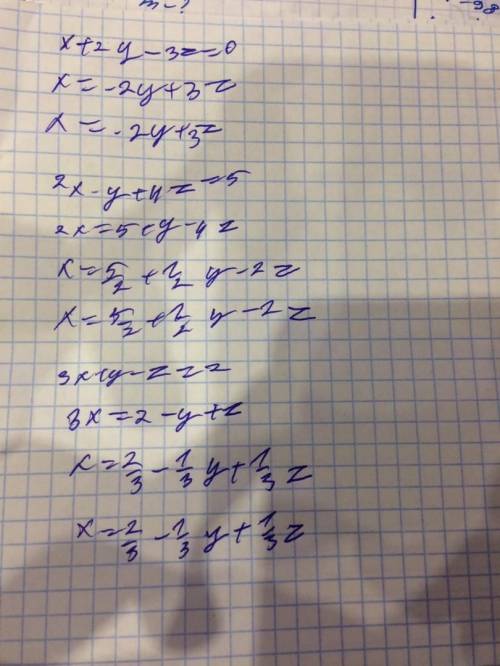 x+2y-3z=0
x=-2y+3z
x=-2y+3z
2x-y+4z=5
2x=5+y-4z
x=5/2+1/2 y-2z
x=5/2+1/2 y-2z
3x+y-z=2
3x=2-y+z
x=2/3-1/3 y+1/3 z
x=2/3-1/3 y+1/3 z